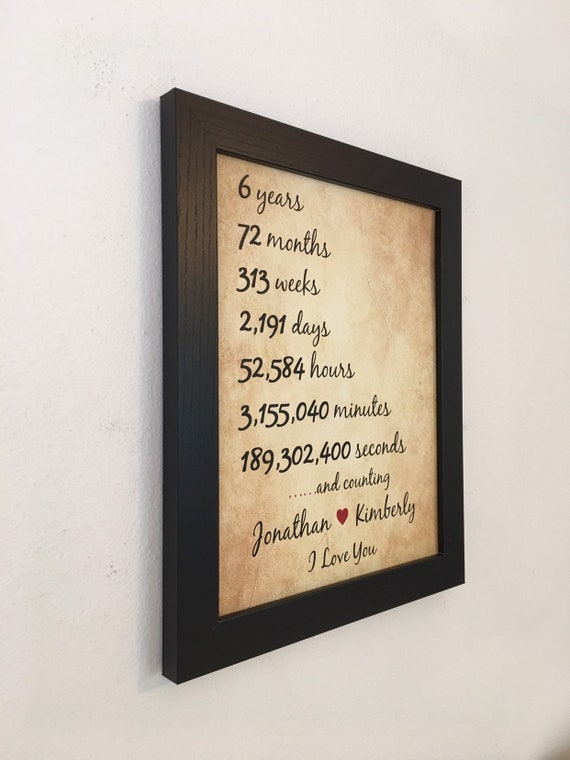 6 years
72 months
313 weeks
2,191 days
52,584 hours
3,155,040 minutes
189,302,400 seconds
......and counting
Jonathan ♥ Kimberly
I Love You